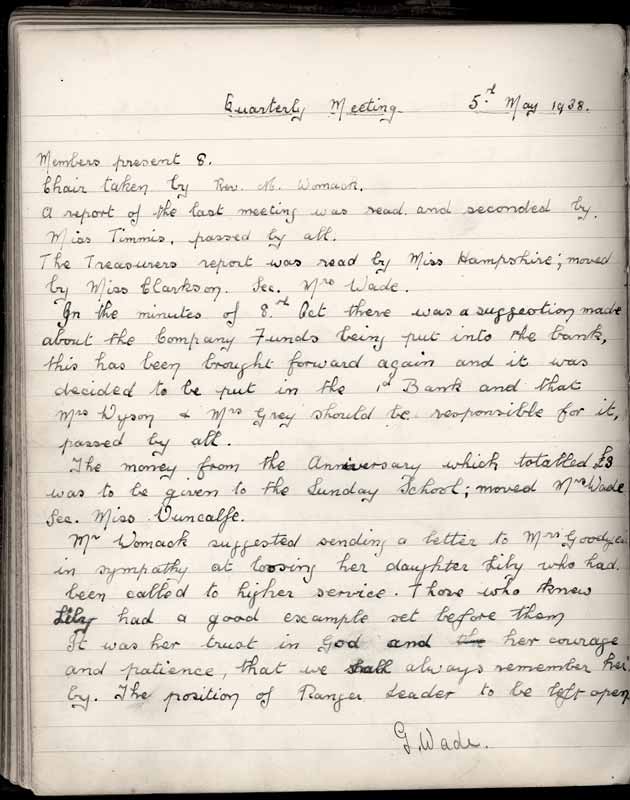 Quarterly Meeting 5th May 1938.
Members present 8.
Chair taken by Rev. M. Womack.
A report of the last meeting was read and seconded by.
Miss Timmis, passed by all.
The Treasurers report was read by Miss Hampshire; moved
by Miss Clarkson. Sec. Mrs Wade.
In the minutes of 8.th Oct there was a suggestion made
about the Company Funds being put into the bank,
this has been brought forward again and it was
decided to be put in the 1d Bank and that
Mrs Dyson & Mrs Grey should be responsible for it,
passed by all.
The money from the Anniversary which totalled £3
was to be given to the Sunday School; moved Mrs Wade
Sec. Miss Duncalfe.
Mr Womack suggested sending a letter to Mrs
in sympathy at loosing her daughter Lily who had.
been called to higher service. Those who knew
Lily had a good example set before them
It was her trust in God and the her courage
and patience, that we shall always remember her
by. The position of Ranger Leader to be left open
G. Wade.